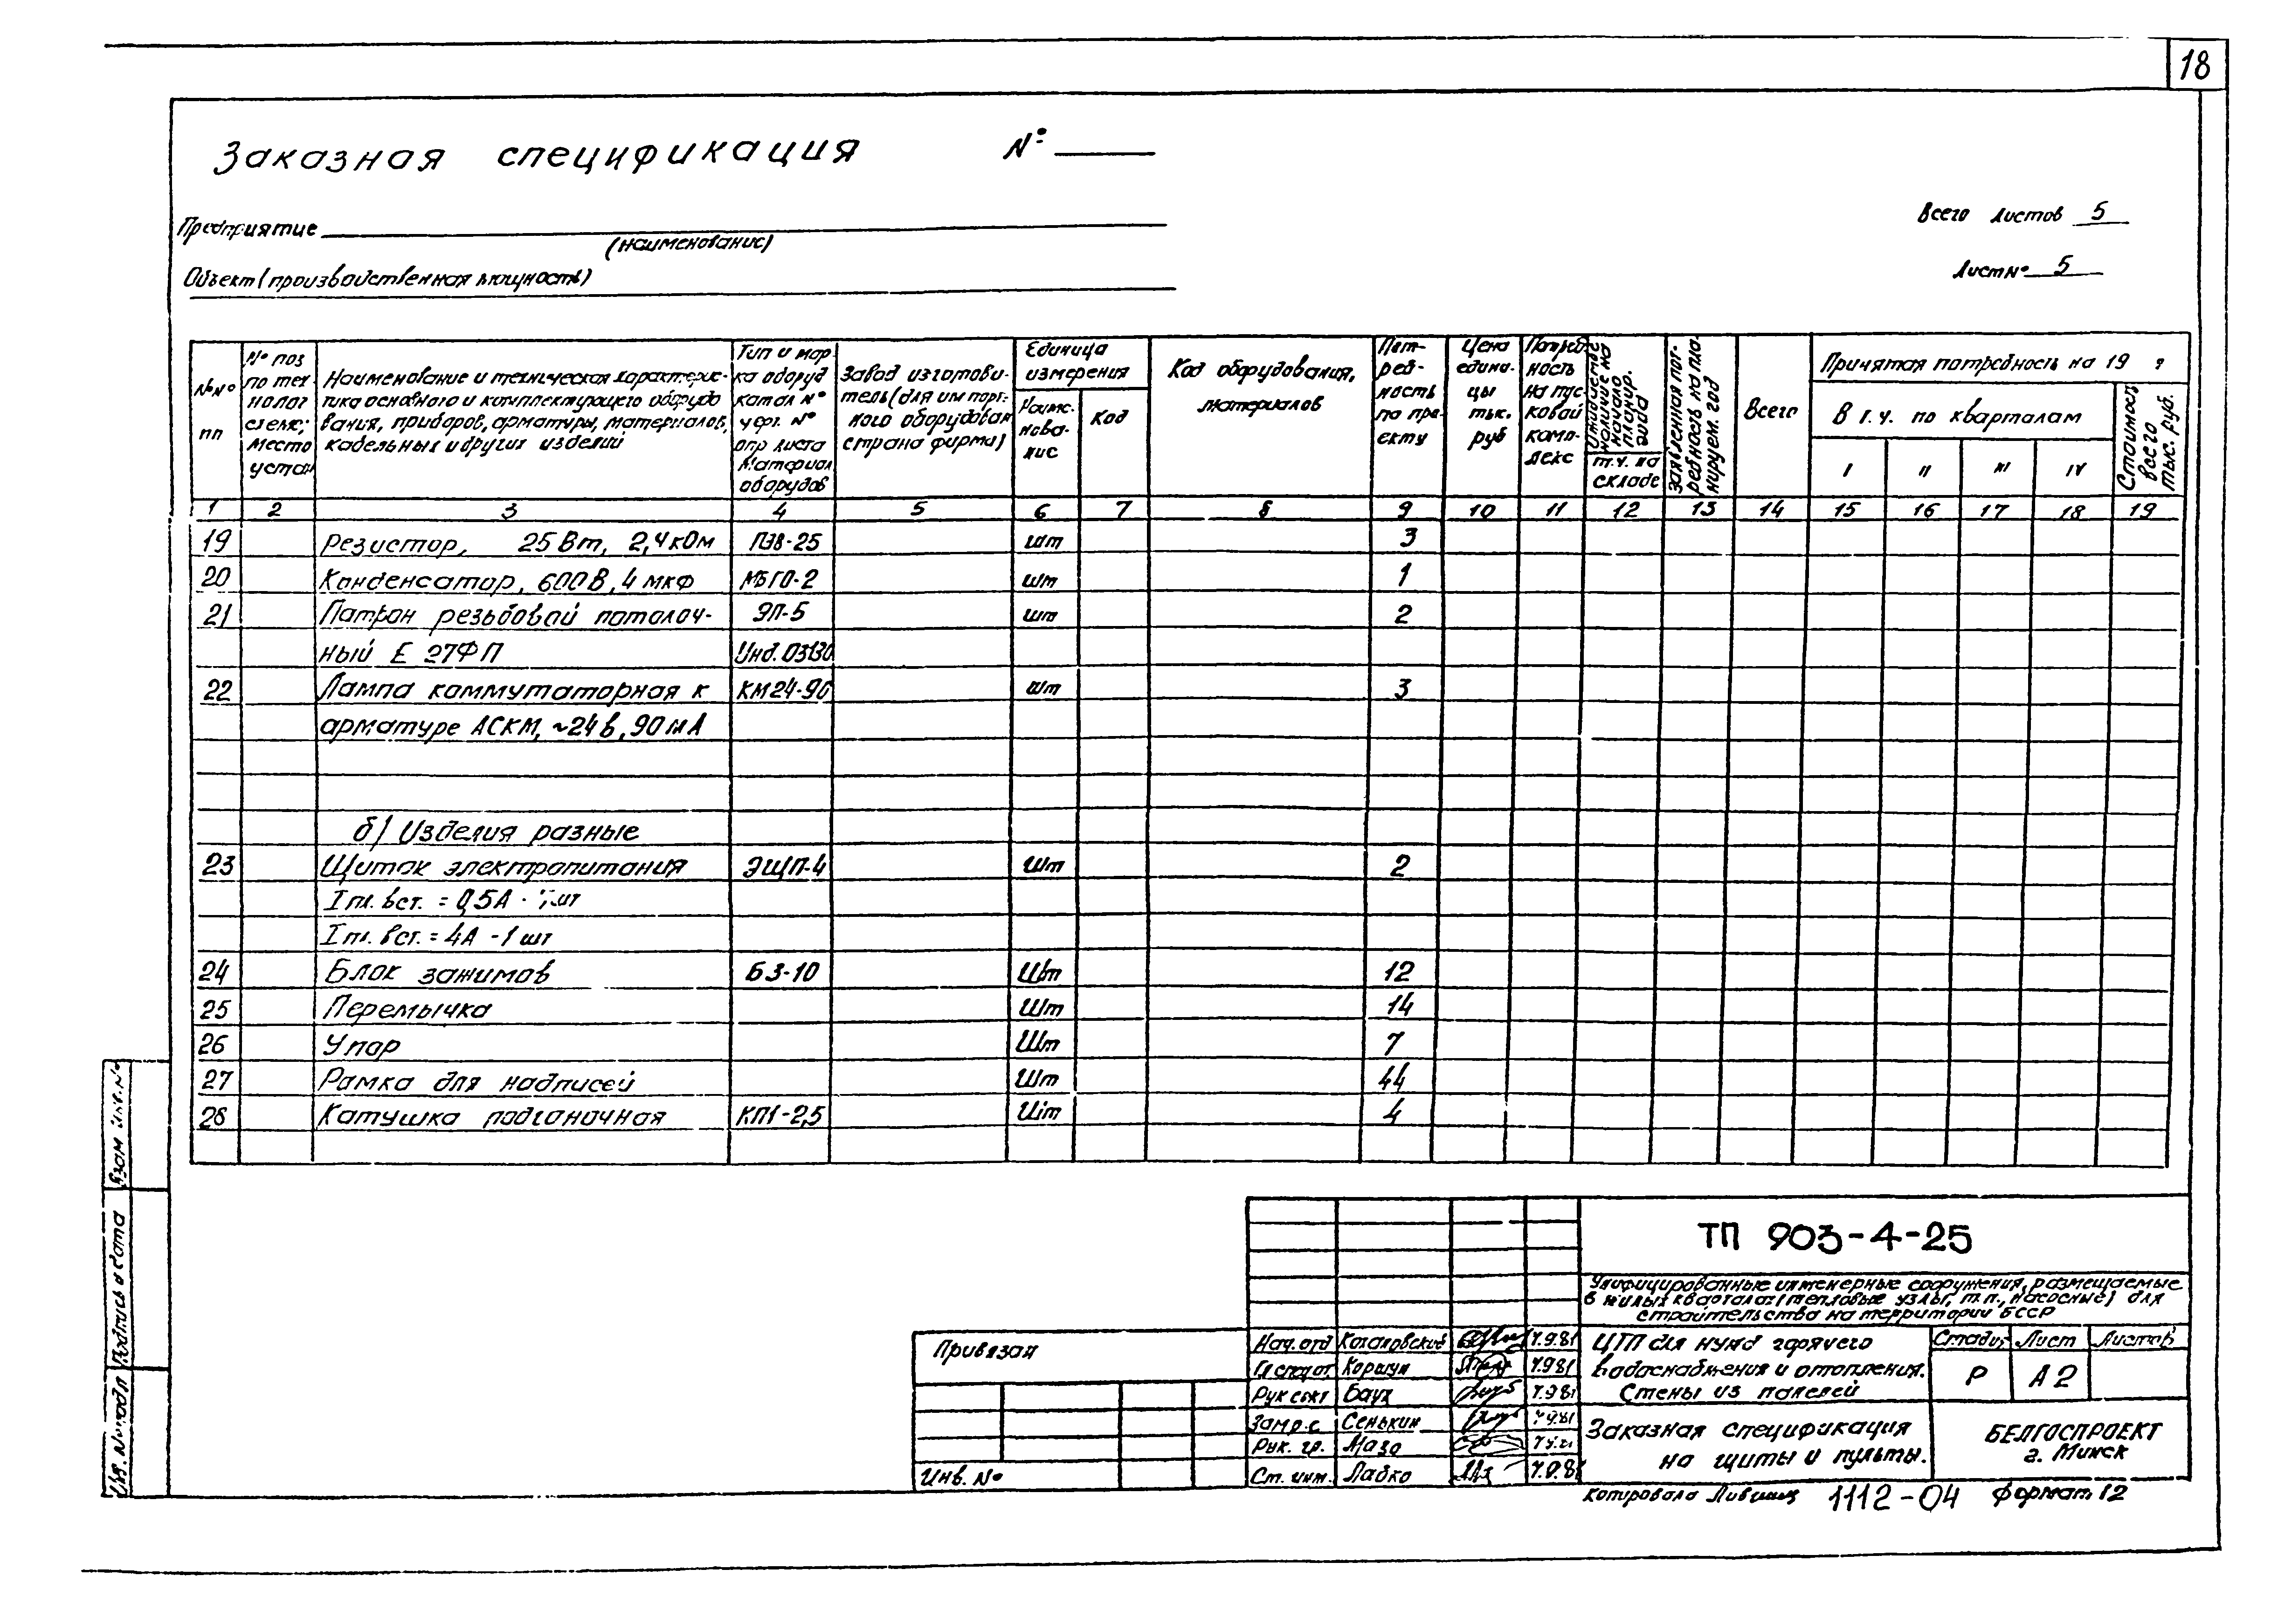 18
Заказная спецификация № ____
Предприятие
(наименование)
Всего листов 5
Объект (производственная мощность)
Лист № 5
№№ пп
№ поз по тех нолог схеме; место устан
Наименование и техническая характерис-
тика основного и комплектующего оборудо
вания, приборов, арматуры, материалов,
кабельных и других изделий
Тип и мар
ка оборуд
катал №
черт. №
опр листа
Материал
оборудов
Завод изготови-
тель (для импорт-
ного оборудован
страна фирма)
Единица
измерения
Наиме-
нова-
ние
Код
Код оборудования,
материалов
Пот-
реб-
ность
по про-
екту
Цена
едини-
цы
тыс.
руб
Потреб
ность
на пус-
ковой
комп-
лекс
наличие на
начало
планир.
года
т.ч. на
складе
Заявленная пот-
ребность на пла-
нируем. год
Всего
Принятая потребность на 19 г
В т.ч. по кварталам
I II III IV
Стоимость
всего
тыс. руб.
1 2 3 4 5 6 7 8 9 10 11 12 13 14 15 16 17 18 19
19 Резистор, 25 Вт, 2,4 кОм ПЭВ-25 шт 3
20 Конденсатор, 600 В, 4 мкф МБГО-2 шт 1
21 Патрон резьбовой потолоч- ЭП-5 шт 2
ный Е 27ФП Инд. 03130
22 Лампа коммутаторная к КМ24-90 шт 3
арматуре АСКМ, ~24 в, 90 мА
б) Изделия разные
23 Щиток электропитания ЭЩП-4 шт 2
I пл. вст. = 0,5А - шт
I пл. вст. = 4А - 1 шт
24 Блок зажимов БЗ-10 шт 12
25 Перемычка шт 14
26 Упор шт 7
27 Рамка для надписей шт 44
28 Катушка подгоночная КП1-2,5 шт 4
Взам инв. №
Подпись и дата
Инв. № подл
ТП 903-4-25
Унифицированные инженерные сооружения, размещаемые
в жилых кварталах (тепловые узлы, т.п., насосные) для
строительства на территории БССР
Привязан
Инв. №
Нач. отд 4.9.81
Гл спец от Коршун 4.9.81
Рук сект Баух 4.9.81
Сенькин
Рук. гр. Мазо
Ст. инж. Ладко
ЦТП для нужд горячего
водоснабжения и отопления.
Стены из панелей
Стадия Лист Листов
Р А2
Заказная спецификация
на щиты и пульты.
БЕЛГОСПРОЕКТ
г. Минск
Копировала Лившиц 1112-04 Формат 12